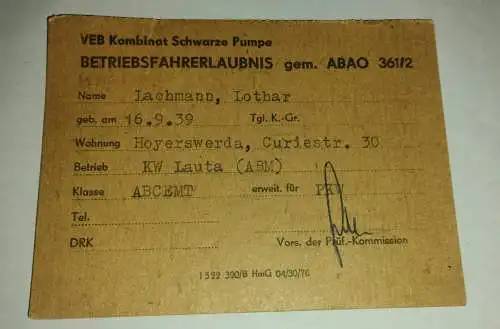 VEB Kombinat Schwarze Pumpe
BETRIEBSFAHRERLAUBNIS gem. ABAO 361/2
Name Lachmann, Lothar
geb. am 16.9.39 Tgl. K.-Gr.
Wohnung Hoyerswerda, Curiestr. 30
Betrieb KW Lauta (ABM)
Klasse ABCEMT erweit. für PKW
Tel.
DRK Vors. der Prüf.-Kommission
1522 300/8 HmG 04/30/76